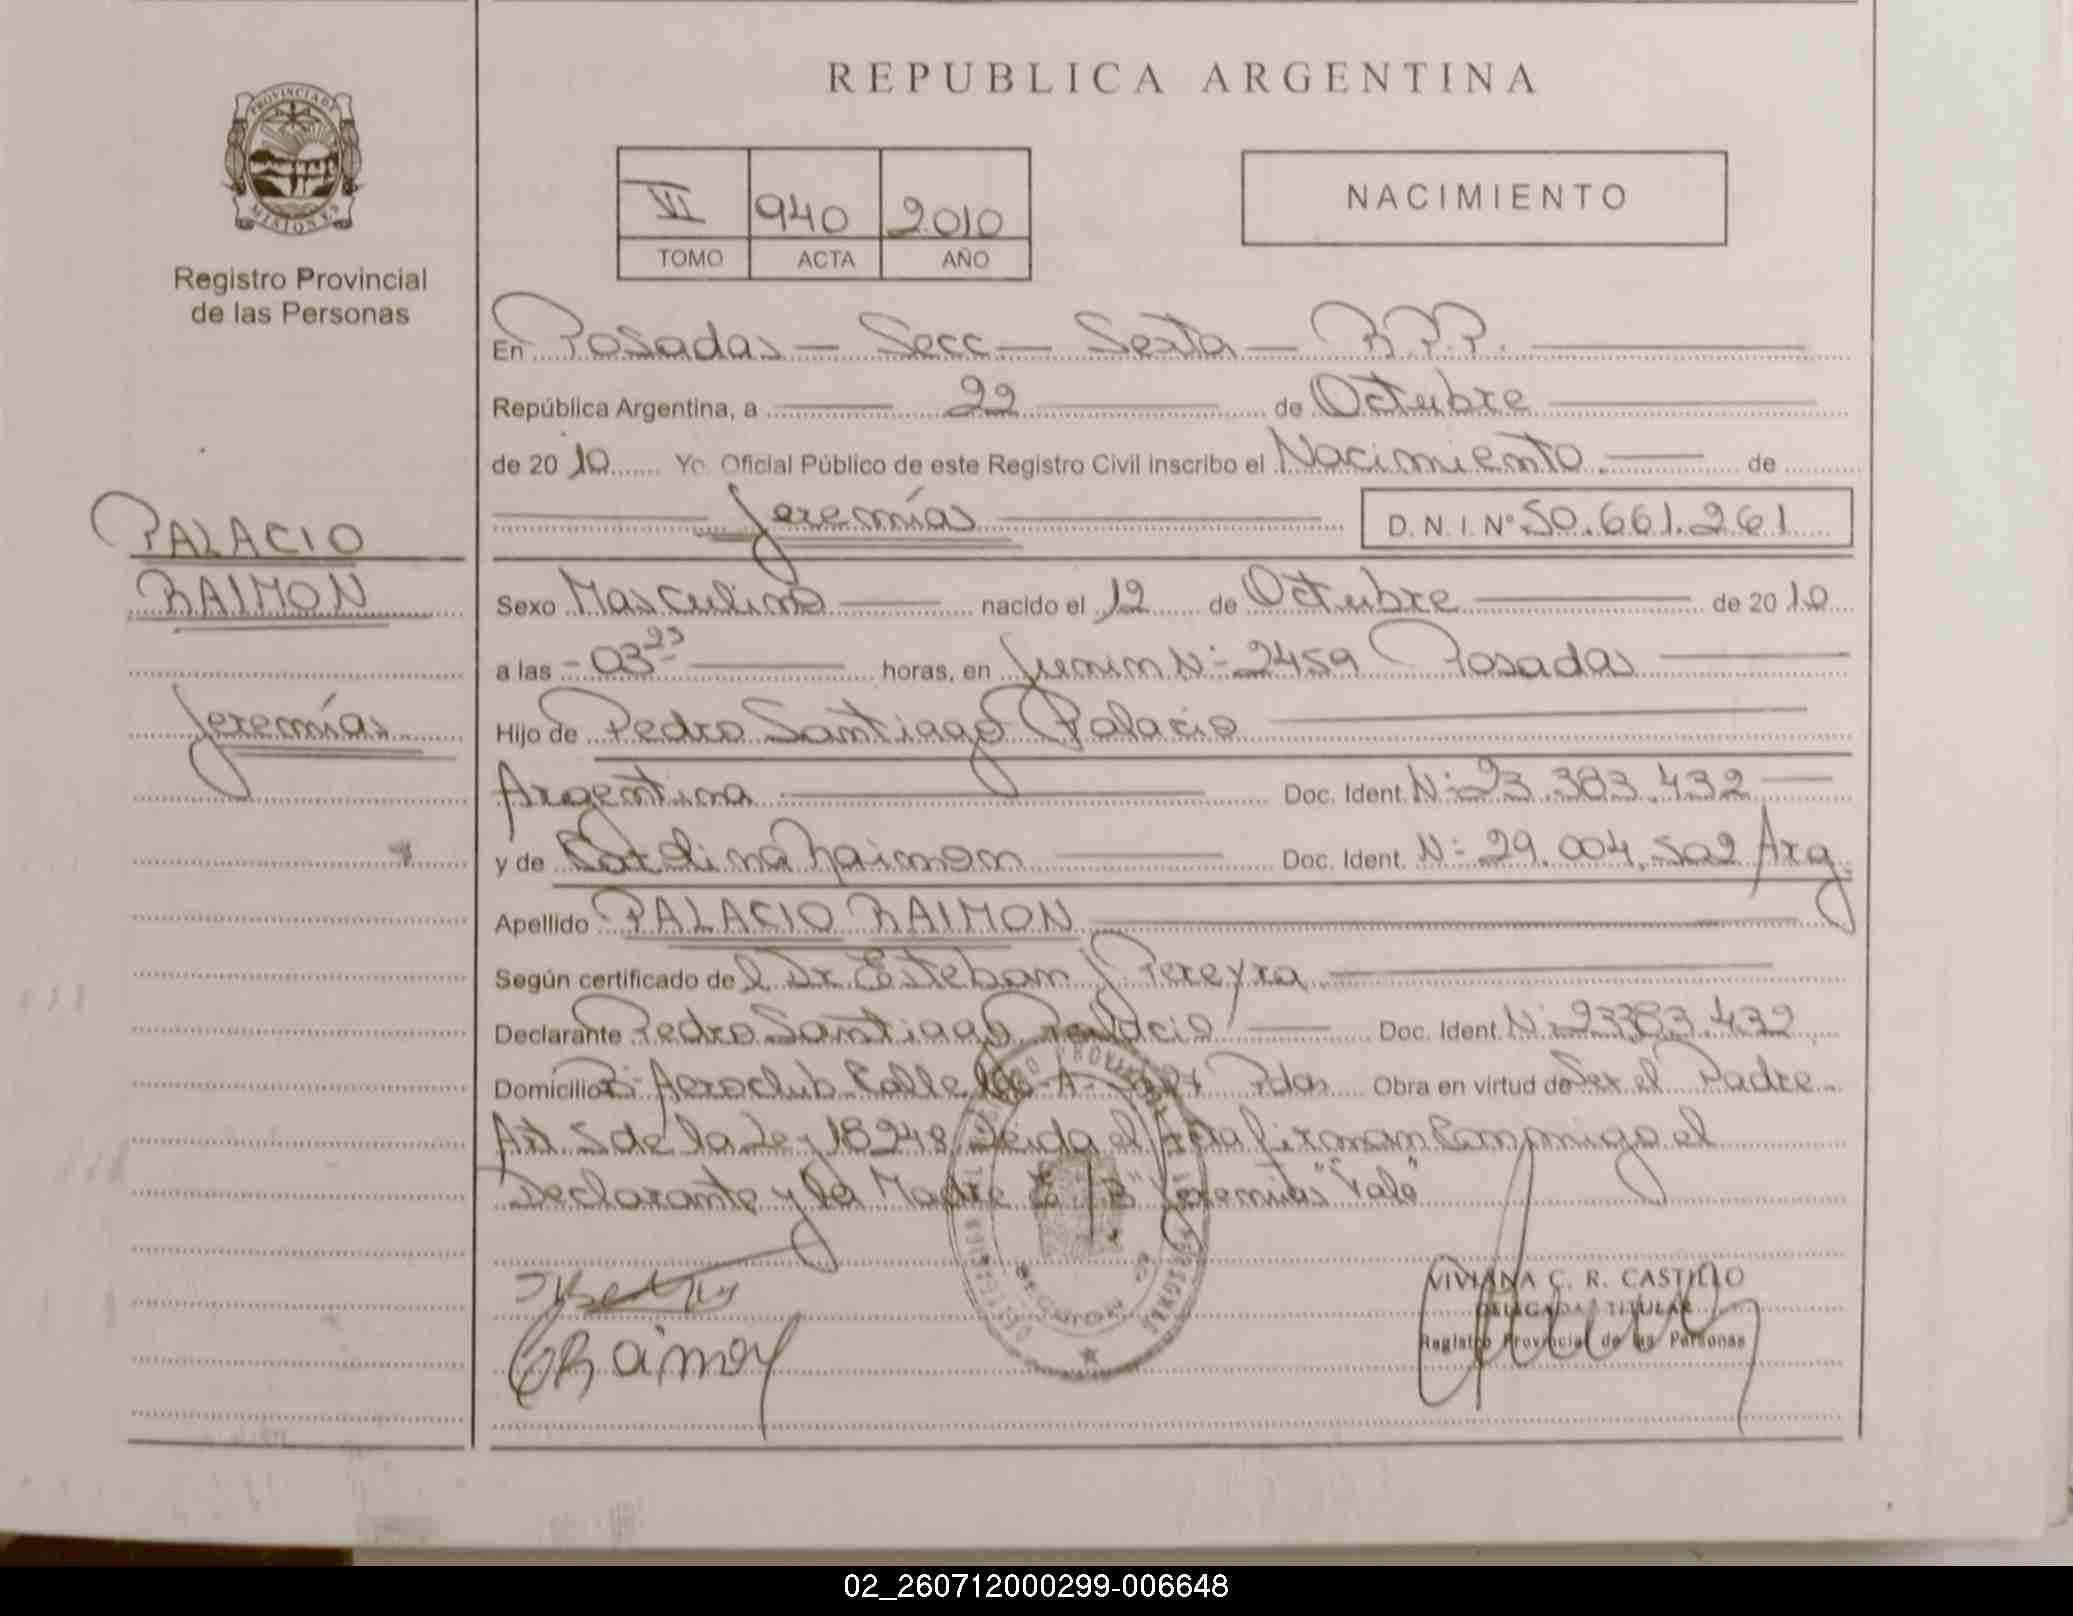 REPUBLICA ARGENTINA
PROVINCIA DE
MISIONES
Registro Provincial
de las Personas
VI 940 2010
TOMO ACTA AÑO
NACIMIENTO
En Posadas — Secc — Sexta — R.P.P.
República Argentina, a 22 de Octubre
de 2010 Yo Oficial Público de este Registro Civil Inscribo el Nacimiento. de
Jeremías D. N. I. N° 50.661.261
PALACIO
RAIMON
Jeremías
Sexo Masculino nacido el 12 de Octubre de 2010
a las - 03 25 horas, en Junin N:- 2459 Posadas
Hijo de Pedro Santiago Palacio
Argentina Doc. Ident. N:- 23.383.432
y de Carolina Raimon Doc. Ident. N:- 29.004.502 Arg.
Apellido PALACIO RAIMON
Según certificado de l Dr. Esteban Pereyra
Declarante Pedro Santiago Palacio Doc. Ident. N:- 23383.432
Domicilio B:- Aeroclub Calle Pdas Obra en virtud de Ser el Padre
Art. 5 de la Ley 18248 Leida el Acta firman Conmigo el
Declarante y la Madre "Jeremías" Vale
Raimon
VIVIANA C. R. CASTILLO
DELEGADA TITULAR
Registro Provincial de las Personas
02_260712000299-006648